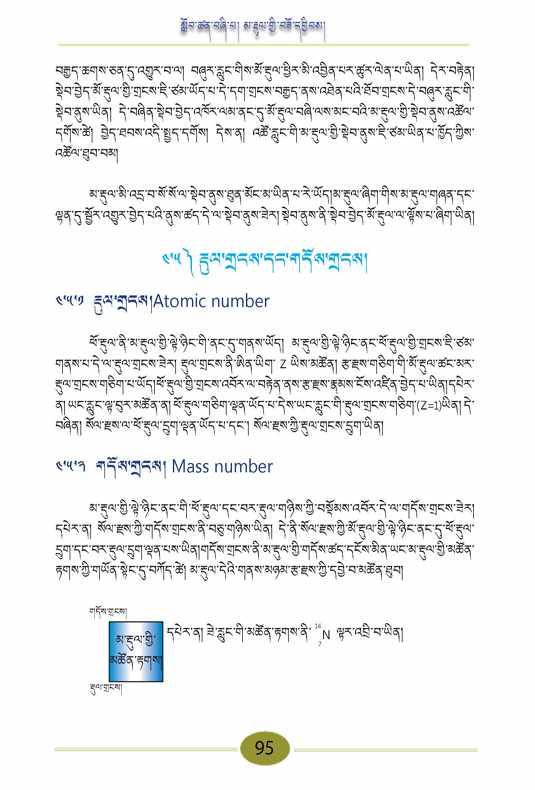 སློབ་ཚན་བཞི་པ། མ་རྡུལ་གྱི་བཟོ་དབྱིབས།
བརྒྱད་ཆགས་ཅན་དུ་འགྱུར་བ་ལ། བཞུར་རླུང་གིས་མོ་རྡུལ་ཕྱིར་མི་འབྱིན་པར་ཚུར་ལེན་པ་ཡིན། དེར་བརྟེན།
སྡེབ་བྱེད་མོ་རྡུལ་གྱི་གྲངས་ཇི་ཙམ་ཡོད་པ་དེ་དག་གྲངས་བརྒྱད་ནས་འཐེན་པའི་ཐོབ་གྲངས་དེ་བཞུར་རླུང་གི་
སྡེབ་ནུས་ཡིན། དེ་བཞིན་སྡེབ་བྱེད་འཁོར་ལམ་ནང་དུ་མོ་རྡུལ་བཞི་ལས་མང་བའི་མ་རྡུལ་གྱི་སྡེབ་ནུས་འཚོལ་
དགོས་ཚེ། བྱེད་ཐབས་འདི་སྤྱད་དགོས། དེས་ན། འཚོ་རླུང་གི་མ་རྡུལ་གྱི་སྡེབ་ནུས་ཇི་ཙམ་ཡིན་པ་ཁྱོད་ཀྱིས་
འཚོལ་ཐུབ་བམ།
མ་རྡུལ་མི་འདྲ་བ་སོ་སོ་ལ་སྡེབ་ནུས་ཐུན་མོང་མ་ཡིན་པ་རེ་ཡོད།མ་རྡུལ་ཞིག་གིས་མ་རྡུལ་གཞན་དང་
ལྷན་དུ་སྦྱོར་འགྱུར་བྱེད་པའི་ནུས་ཚད་དེ་ལ་སྡེབ་ནུས་ཟེར། སྡེབ་ནུས་ནི་སྡེབ་བྱེད་མོ་རྡུལ་ལ་ལྟོས་པ་ཞིག་ཡིན།
༤་༥ ༽ རྡུལ་གྲངས་དང་གདོས་གྲངས།
༤་༥་༡ རྡུལ་གྲངས།Atomic number
ཕོ་རྡུལ་ནི་མ་རྡུལ་གྱི་ལྟེ་ཉིང་གི་ནང་དུ་གནས་ཡོད། མ་རྡུལ་གྱི་ལྟེ་ཉིང་ནང་ཕོ་རྡུལ་གྱི་གྲངས་ཇི་ཙམ་
གནས་པ་དེ་ལ་རྡུལ་གྲངས་ཟེར། རྡུལ་གྲངས་ནི་ཨིན་ཡིག་ Z ཡིས་མཚོན། རྩ་རྫས་གཅིག་གི་མོ་རྡུལ་ཚང་མར་
རྡུལ་གྲངས་གཅིག་པ་ཡོད།ཕོ་རྡུལ་གྱི་གྲངས་འབོར་ལ་བརྟེན་ནས་རྩ་རྫས་རྣམས་ངོས་འཛིན་བྱེད་པ་ཡིན།དཔེར་
ན། ཡང་རླུང་ལྟ་བུར་མཚོན་ན། ཕོ་རྡུལ་གཅིག་ལྡན་ཡོད་པ་དེས་ཡང་རླུང་གི་རྡུལ་གྲངས་གཅིག་(Z=1)ཡིན། དེ་
བཞིན། སོལ་རྫས་ལ་ཕོ་རྡུལ་དྲུག་ལྡན་ཡོད་པ་དང་། སོལ་རྫས་ཀྱི་རྡུལ་གྲངས་དྲུག་ཡིན།
༤་༥་༢ གདོས་གྲངས། Mass number
མ་རྡུལ་གྱི་ལྟེ་ཉིང་ནང་གི་ཕོ་རྡུལ་དང་བར་རྡུལ་གཉིས་ཀྱི་བསྡོམས་འབོར་དེ་ལ་གདོས་གྲངས་ཟེར།
དཔེར་ན། སོལ་རྫས་ཀྱི་གདོས་གྲངས་ནི་བཅུ་གཉིས་ཡིན། དེ་ནི་སོལ་རྫས་ཀྱི་མོ་རྡུལ་གྱི་ལྟེ་ཉིང་ནང་དུ་ཕོ་རྡུལ་
དྲུག་དང་བར་རྡུལ་དྲུག་ལྡན་པས་ཡིན།གདོས་གྲངས་ནི་མ་རྡུལ་གྱི་གདོས་ཚད་དངོས་མིན་ཡང་མ་རྡུལ་གྱི་མཚོན་
རྟགས་ཀྱི་གཡོན་སྟེང་དུ་བཀོད་ཚེ། མ་རྡུལ་དེའི་གནས་མཉམ་རྩ་རྫས་ཀྱི་དབྱེ་བ་མཚོན་ཐུབ།
གདོས་གྲངས།
མ་རྡུལ་གྱི་
མཚོན་རྟགས།
རྡུལ་གྲངས།
དཔེར་ན། ཟེ་རླུང་གི་མཚོན་རྟགས་ནི་ ¹⁴₇N ལྟར་འབྲི་བ་ཡིན།
95